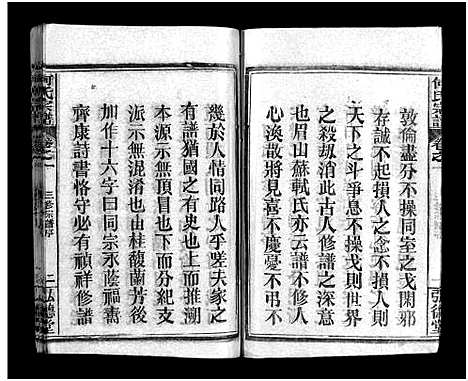 何氏宗譜
卷之一
弘德堂
敦倫盡分不操同室之戈閑邪
存誠不起損人之念不損人則
天下之斗爭息不操戈則世界
之殺劫消此古人修譜之深意
也眉山蘇軾氏亦云譜不修人
心渙散將見喜不慶憂不弔不
幾於人情同路人乎嗟夫家之
有譜猶國之有史所以上而推溯
本源示無頂冒也下而分紀支
派示無混淆也由桂馥蘭芳後
加作十六字曰同宗永蔭福壽
齊康詩書恪守必有禎祥修譜
何氏宗譜
卷之一
三修宗譜序
二
弘德堂